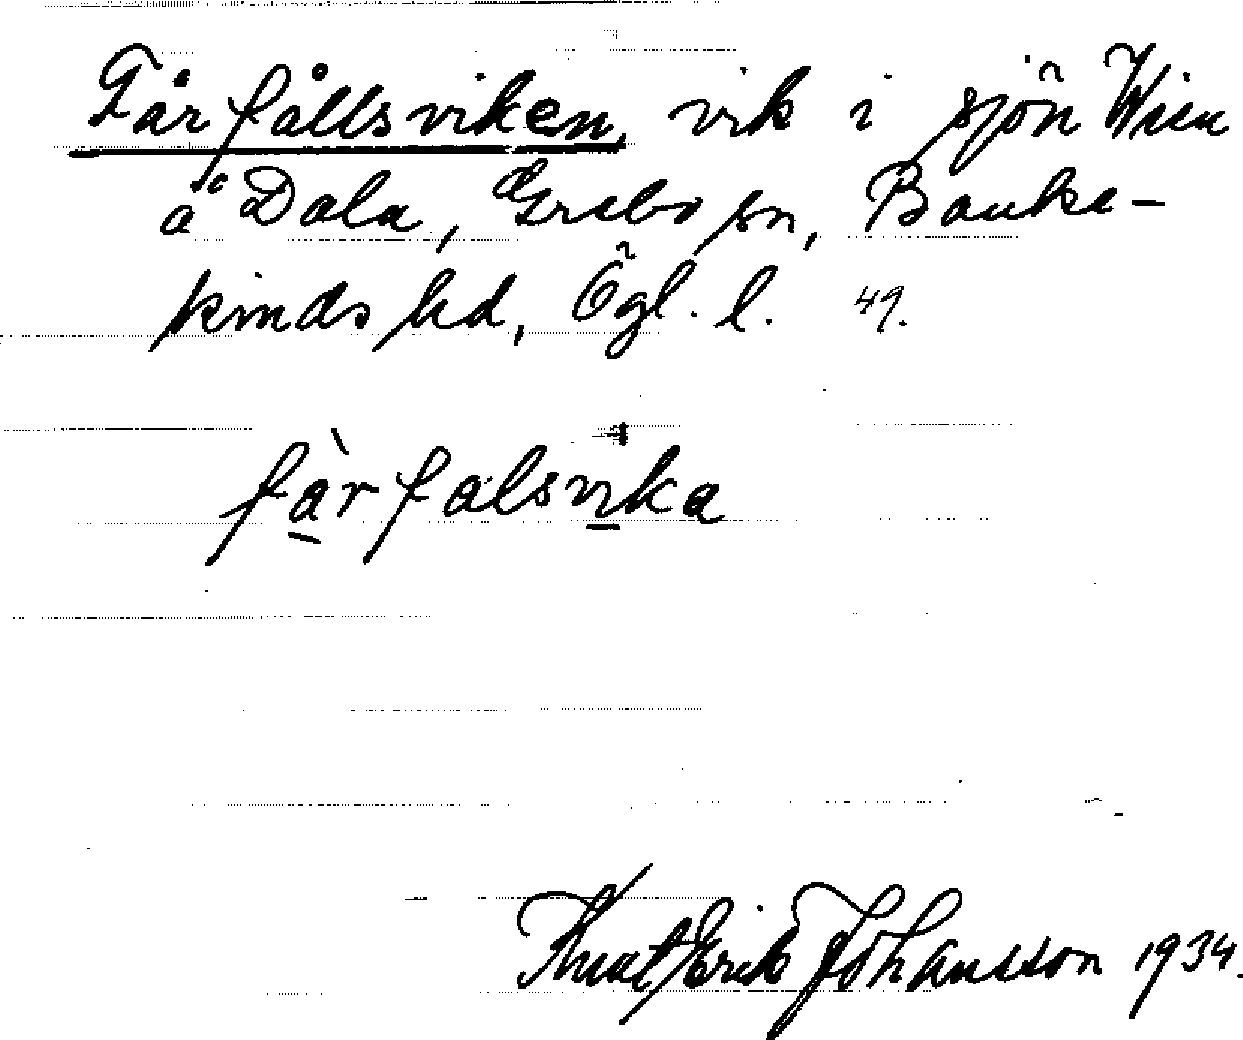 Fårfållsviken, vik i sjön Wien
å Dala, Grebo sn, Banke-
kinds hd, Ögl. l. 49.
fàrfalsvika
Knut Erik Johansson 1934.